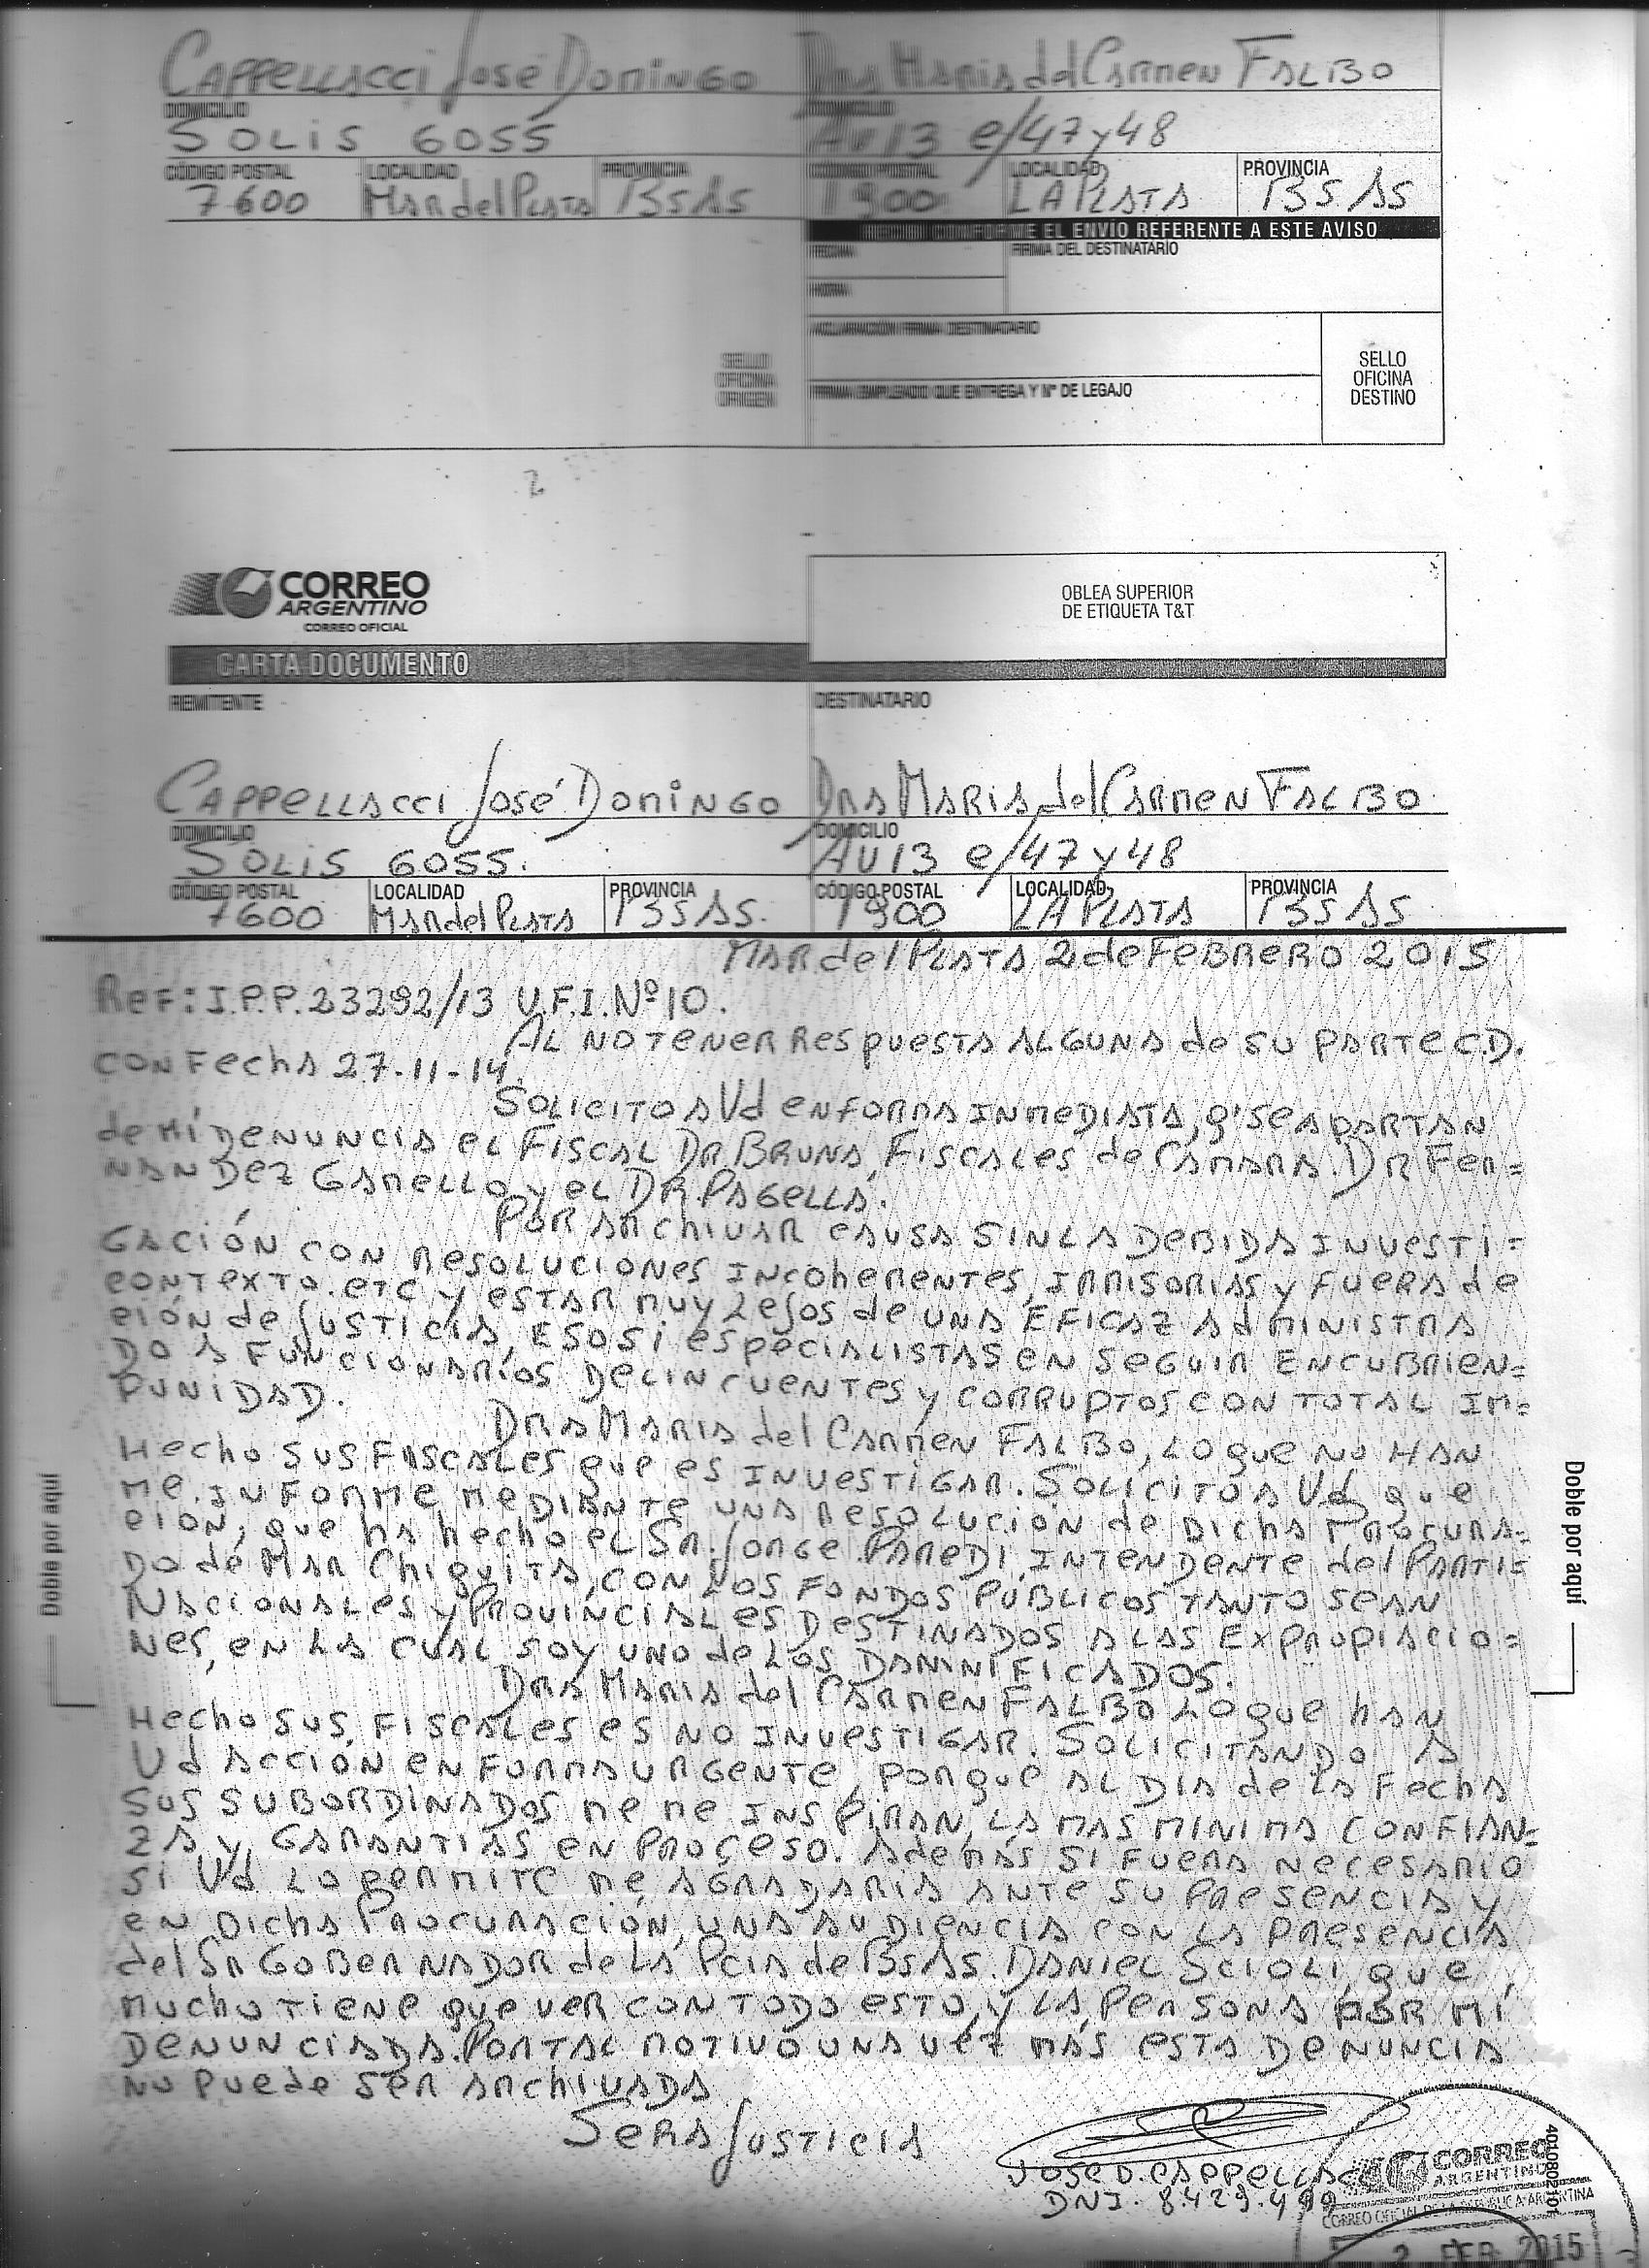 CAPPELLACCI José DOMINGO
DRA MARIA del CARMEN FALBO
DOMICILIO
SOLIS 6055
AV 13 e/47 y 48
CÓDIGO POSTAL LOCALIDAD PROVINCIA
7600 MAR del PLATA BS AS
CÓDIGO POSTAL LOCALIDAD PROVINCIA
1900 LA PLATA BS AS
RECIBÍ CONFORME EL ENVÍO REFERENTE A ESTE AVISO
FECHA
FIRMA DEL DESTINATARIO
HORA
ACLARACIÓN FIRMA DESTINATARIO
SELLO
OFICINA
ORIGEN
FIRMA EMPLEADO QUE ENTREGA Y N° DE LEGAJO
SELLO
OFICINA
DESTINO
2
CORREO
ARGENTINO
CORREO OFICIAL
OBLEA SUPERIOR
DE ETIQUETA T&T
CARTA DOCUMENTO
REMITENTE
DESTINATARIO
CAPPELLACCI José DOMINGO
DRA MARIA del CARMEN FALBO
DOMICILIO
SOLIS 6055.
DOMICILIO
AV 13 e/47 y 48
CÓDIGO POSTAL LOCALIDAD PROVINCIA
7600 MAR del PLATA BS AS.
CÓDIGO POSTAL LOCALIDAD PROVINCIA
1900 LA PLATA BS AS
MAR del PLATA 2 de FEBRERO 2015
REF: I.P.P. 23292/13 U.F.I. Nº 10.
AL NO TENER RESPUESTA ALGUNA de SU PARTE C.D.
CON FECHA 27-11-14.
SOLICITO A Ud EN FORMA INMEDIATA, q' SE APARTAN
de MÍ DENUNCIA EL FISCAL DR BRUNA, FISCALES de CAMARA DR FER=
NANDEZ GARELLO y EL DR. PAGELLA.
POR ARCHIVAR CAUSA SIN LA DEBIDA INVESTI=
GACIÓN CON RESOLUCIONES INCOHERENTES, IRRISORIAS y FUERA de
CONTEXTO. etc y ESTAR MUY LEJOS de UNA EFICAZ ADMINISTRA
CIÓN de JUSTICIA, ESO SI ESPECIALISTAS EN SEGUIR ENCUBRIEN=
DO A FUNCIONARÍOS DELINCUENTES y CORRUPTOS CON TOTAL IM=
PUNIDAD.
DRA MARIA del CARMEN FALBO, LO QUE NO HAN
HECHO SUS FISCALES QUE ES INVESTIGAR. SOLICITO A Ud que
ME INFORME MEDIANTE UNA RESOLUCIÓN de DICHA PROCURA=
CION, QUE HA HECHO EL SR. JORGE PAREDI, INTENDENTE del PARTI=
DO de MAR CHIQUITA, CON LOS FONDOS PÚBLICOS TANTO SEAN
NACIONALES y PROVINCIALES DESTINADOS A LAS EXPROPIACIO=
NES, EN LA CUAL SOY UNO de LOS DAMNIFICADOS.
DRA MARIA del CARMEN FALBO LO QUE HAN
HECHO SUS FISCALES ES NO INVESTIGAR. SOLICITANDO A
Ud ACCION EN FORMA URGENTE, PORQUE AL DIA de LA FECHA
SUS SUBORDINADOS ME INSPIRAN, LA MAS MINIMA CONFIAN=
ZA y GARANTIAS EN PROCESO. ADEMÁS SI FUERA NECESARIO
SI Ud LO PERMITE ME AGRADARIA ANTE SU PRESENCIA y
EN DICHA PROCURACIÓN, UNA AUDIENCIA CON LA PRESENCIA
del SR GOBERNADOR de LA PCIA de BS AS. DANIEL SCIOLI, QUE
MUCHO TIENE QUE VER CON TODO ESTO, y LA PERSONA POR MÍ
DENUNCIADA. POR TAL MOTIVO UNA VEZ MÁS ESTA DENUNCIA
NO PUEDE SER ARCHIVADA
SERA JUSTICIA
JOSE D. CAPPELLACCI
DNI. 8.429.499
Doble por aquí
Doble por aquí
CORREO
ARGENTINO
CORREO OFICIAL DE LA REPUBLICA ARGENTINA
2 FEB 2015